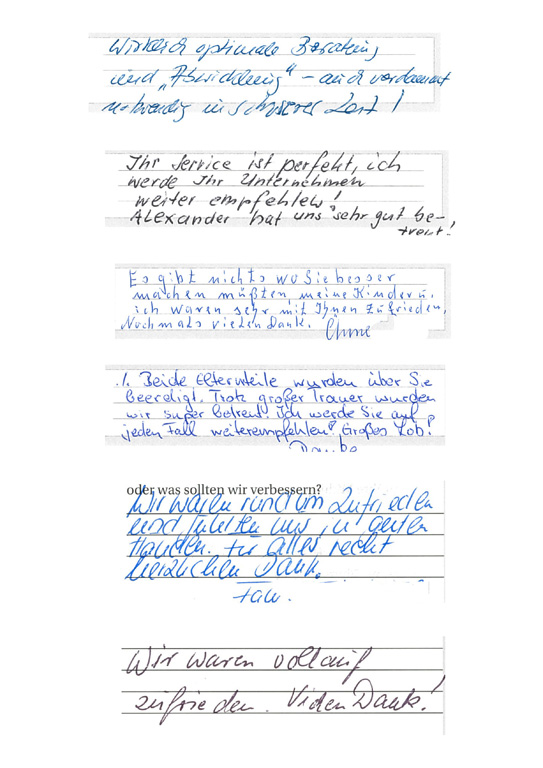 Wirklich optimale Beratung
und "Abwicklung" - auch verdammt
notwendig in schwerer Zeit!
Ihr Service ist perfekt, ich
werde Ihr Unternehmen
weiter empfehlen!
Alexander hat uns sehr gut be-
treut!
Es gibt nichts wo Sie besser
machen müßten meine Kinder u.
ich waren sehr mit Ihnen zufrieden,
Nochmals vielen Dank.
1. Beide Elternteile wurden über Sie
beerdigt. Trotz großer Trauer wurden
wir super betreut! Ich werde Sie auf
jeden Fall weiterempfehlen! Großes Lob!
oder was sollten wir verbessern?
Wir waren rundum zufrieden
und fühlten uns in guten
Händen. Für alles recht
herzlichen Dank.
Fam.
Wir waren vollauf
zufrieden. Vielen Dank!